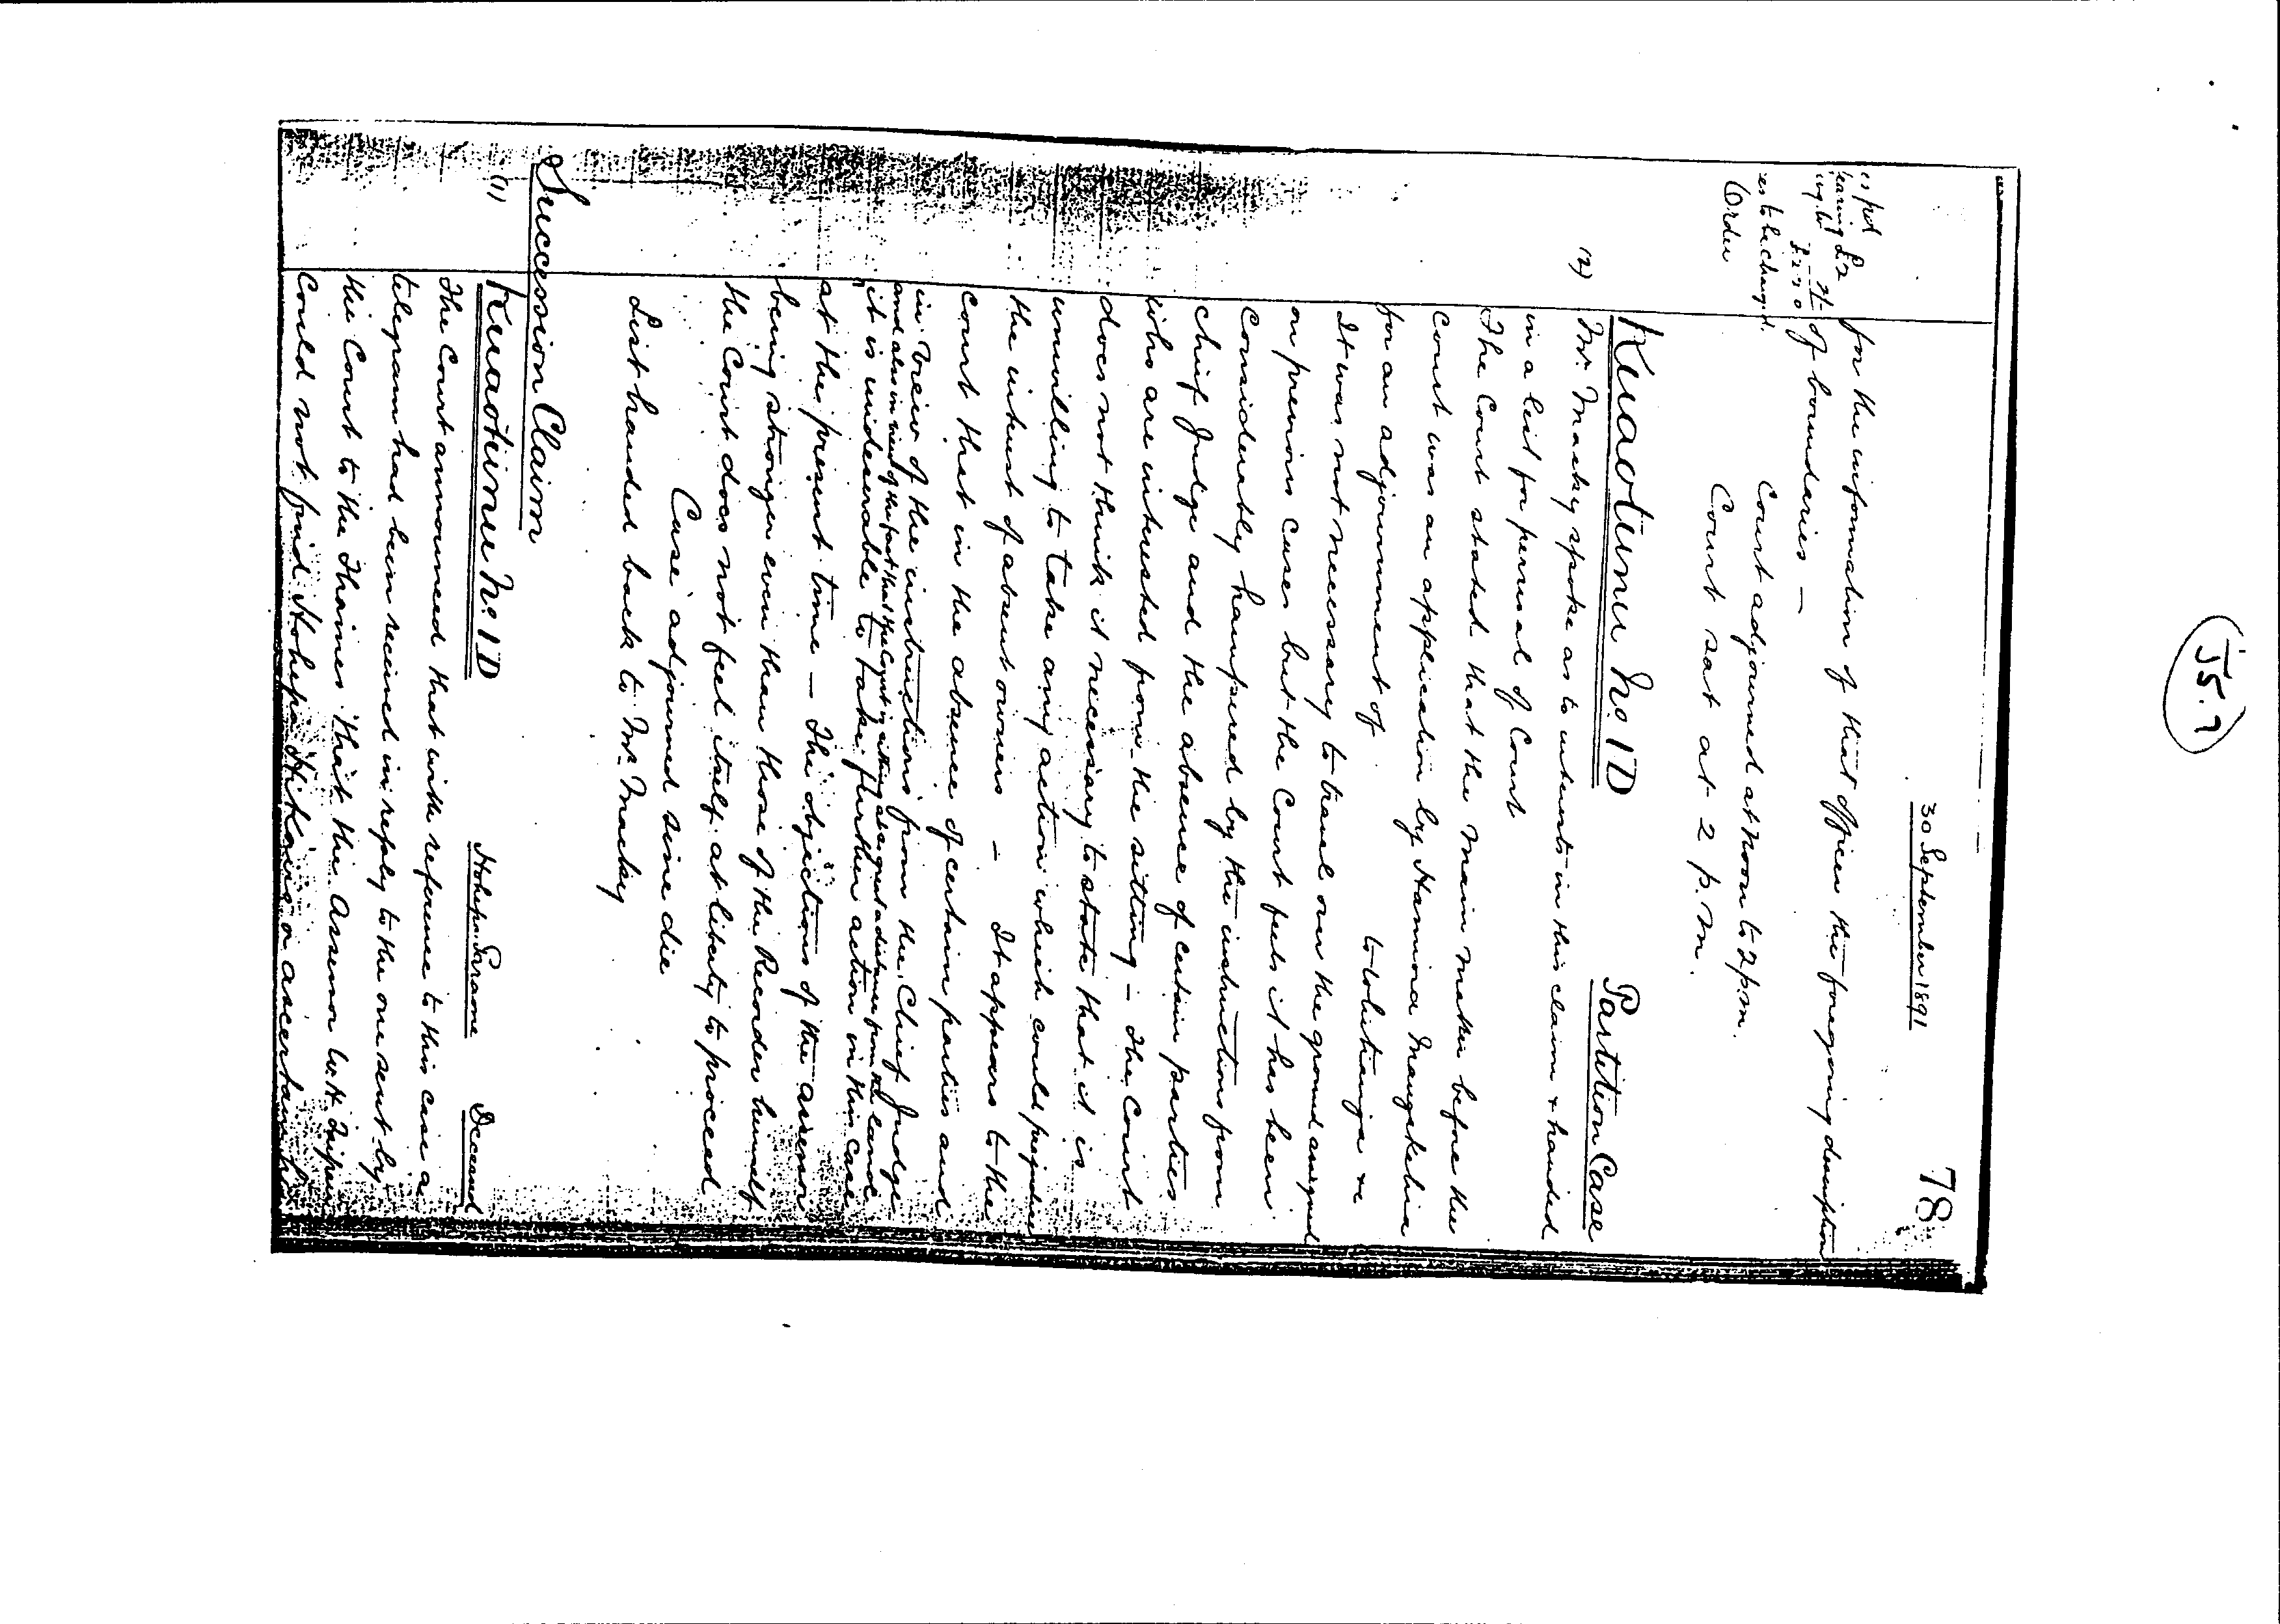 30 September 1891
78
for the information of that officer the foregoing description
of boundaries —
Court adjourned at noon to 2 p.m.
es to be charged.
Order
Court sat at 2 p.m.
Kuaotunu No. 1D
Partition Case
(2)
Mr. Mackey spoke as to interests in this claim & handed
in a list for perusal of Court
The Court stated that the main matter before the
Court was an application by Hamiora Mangakahia
for an adjournment of to Whitianga &c
It was not necessary to travel over the ground assigned
on previous cases but the Court feels it has been
considerably hampered by the instructions from
Chief Judge and the absence of certain parties
who are interested from the sitting – The Court
does not think it necessary to state that it is
unwilling to take any action which could prejudice
the interest of absent owners – It appears to the
Court that in the absence of certain parties and
in view of the instructions from the Chief Judge
and also in view of the fact that the Court is sitting at so great a distance from the land
it is undesirable to take further action in this case
at the present time – The objections of the assessor
being stronger even than those of the Recorder himself
the Court does not feel itself at liberty to proceed
Case adjourned sine die
List handed back to Mr. Mackey
Succession Claim
(1)
Kuaotunu No. 1D
Hohepa Paraone
Deceased
The Court announced that with reference to this case a
telegram had been received in reply to the one sent by
the Court to the Thames. That the Assessor W.H.
could not find Hohepa Hikairo or ascertain
55.9